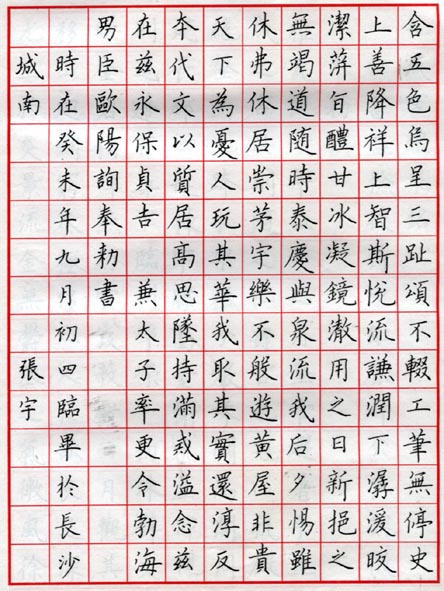 含五色烏呈三趾頌不輟工筆無停史
上善降祥上智斯悅流謙潤下潺湲皎
潔蓱旨醴甘冰凝鏡澈用之日新挹之
無竭道随時泰慶與泉流我后夕惕雖
休弗休居崇茅宇樂不般遊黃屋非貴
天下為憂人玩其華我取其實還淳反
夲代文以質居髙思墜持滿戒溢念茲
在茲永保貞吉兼太子率更令勃海
男臣歐陽詢奉勅書
時在癸未年九月初四臨畢於長沙
城南 張宇